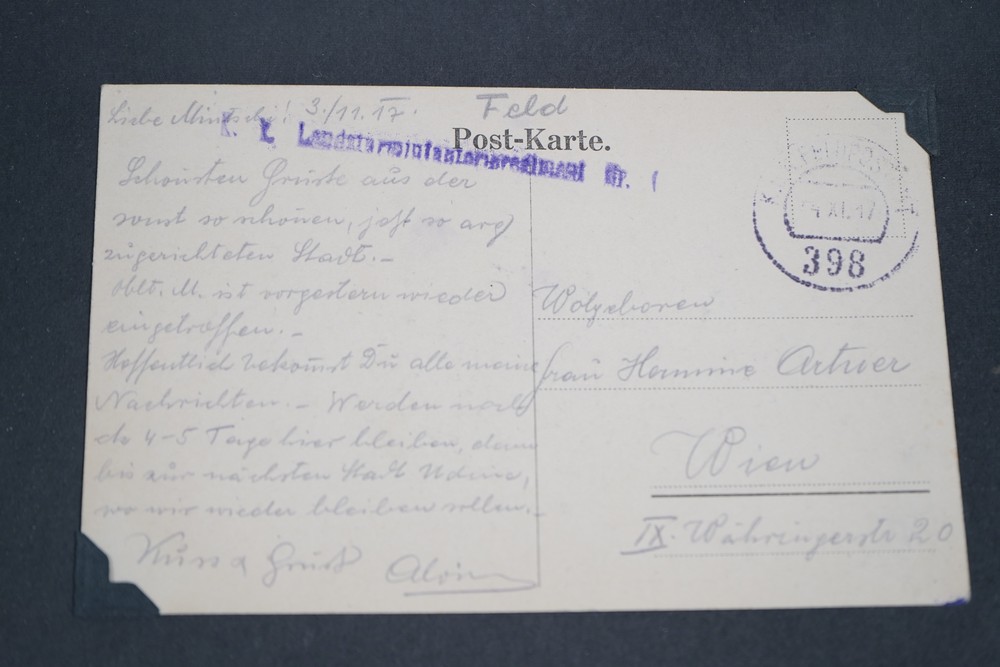 Liebe Mintschi! 3./11.17.
Feld
Post-Karte.
K. k. Landsturminfanterieregiment Nr. 1
Schönsten Grüße aus der
sonst so schönen, jetzt so arg
zugerichteten Stadt.-
Oblt. M. ist vorgestern wieder
eingetroffen.-
Hoffentlich bekommst Du alle meine
Nachrichten.- Werden noch
da 4-5 Tage hier bleiben, dann
bis zur nächsten Stadt Udine,
wo wir wieder bleiben sollen.-
Kuss & Gruß
398
Frau Hermine Artner
Wien
IX. Währingerstr 20